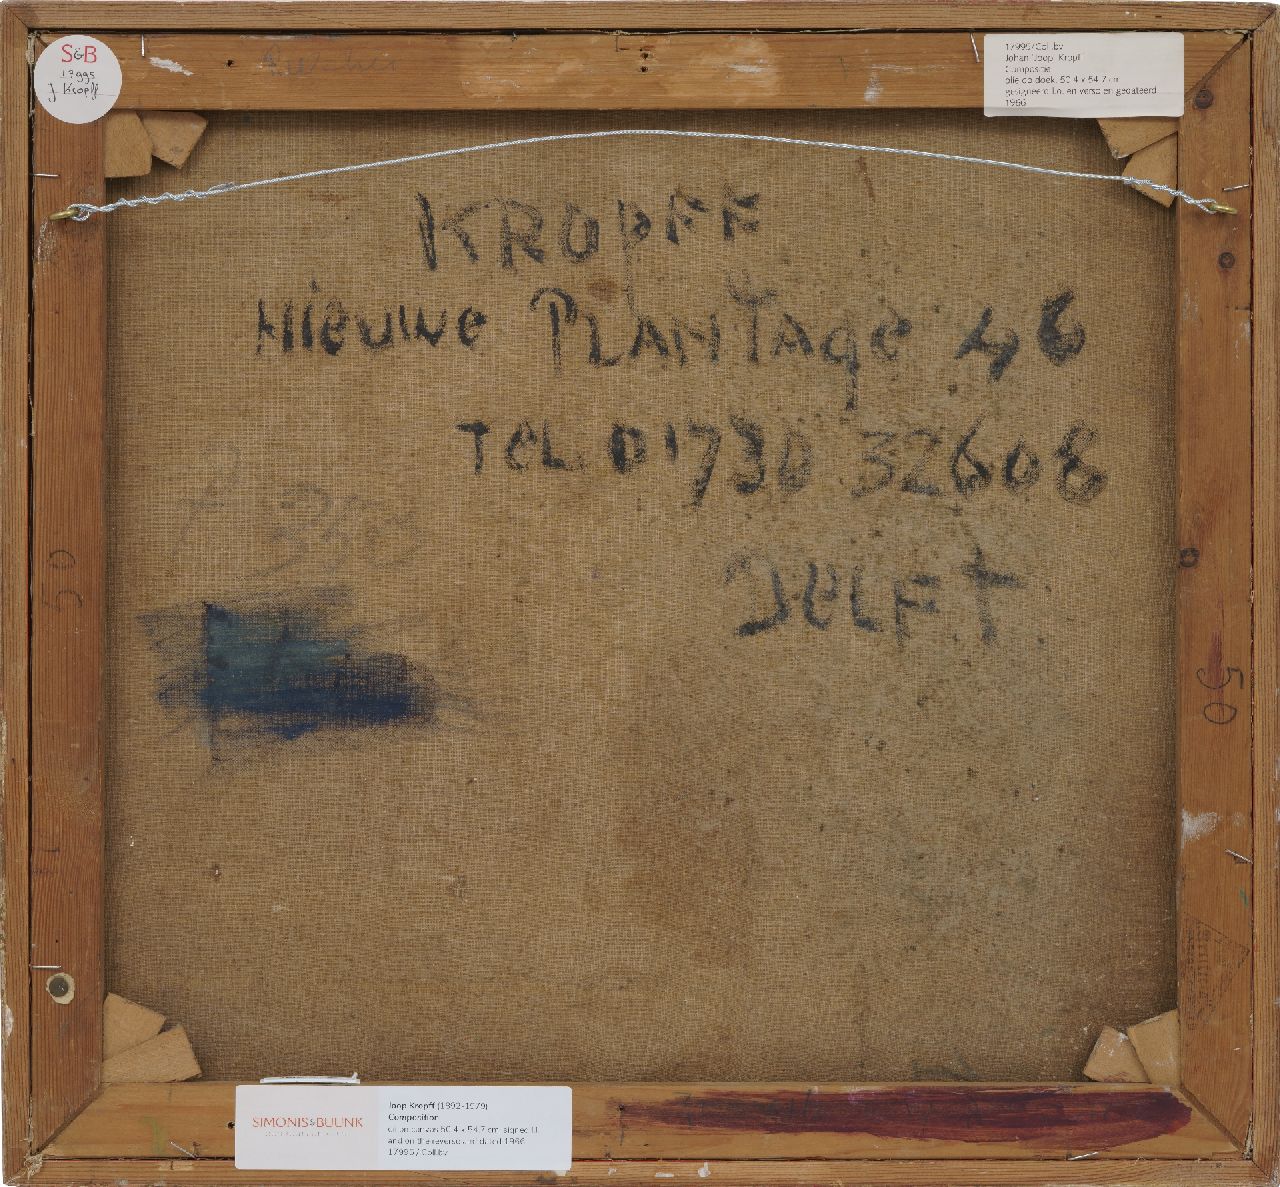 S&B
17995
J Kropff
17995/Coll.bv
Johan 'Joop' Kropff
Compositie
olie op doek, 50.4 x 54.7 cm
gesigneerd l.o. en verso en gedateerd
1966
KROPFF
NIEUWE PLANTAGE 46
TEL 01730 32608
DELFT
350
50
50
SIMONIS&BUUNK
Joop Kropff (1892-1979)
Composition
oil on canvas 50.4 x 54.7 cm, signed l.l.
and on the reverse and dated 1966
17995 / Coll.bv